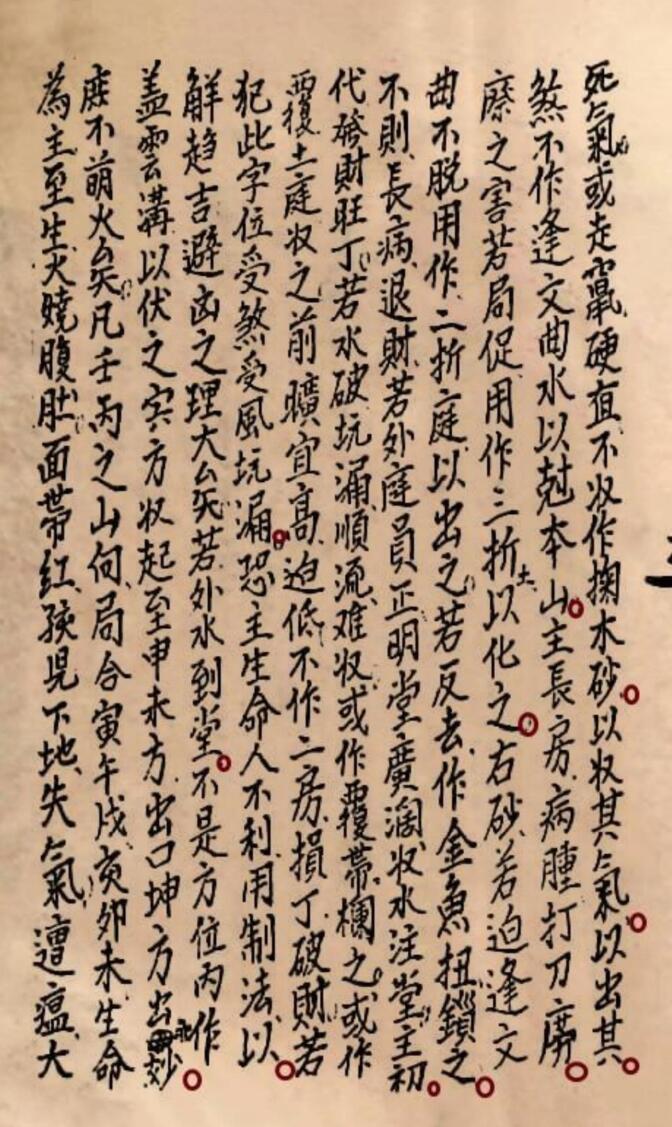 死气氣或走竄硬直不収作掬木砂以収其气氣以出其
煞不作逢文曲水以尅本山主長房病腫打刀二房
瘵之害若局促用作三折土以化之右砂若迫逢文
曲不脱用作二折庭以出之若反去作金魚扭鎖之
不則長病退財若外庭員正明堂廣濶収水注堂主初
代發財旺丁若水破坑漏順流难収或作覆帶欄之或作
覆土庭収之前曠宜高迫低不作二房損丁破財若
犯此字位受煞受風坑漏恐主生命人不利用制法以
解趋吉避凶之理大公矢若外水到堂不是方位丙作
盖雲溝以伏之寅方収起至申未方出口坤方出妙
庶不萌火公矢凡壬丙之山向局合寅午戌亥卯未生命
為主至生火燒腹肚面帶紅孩児下地失气氣遭瘟大